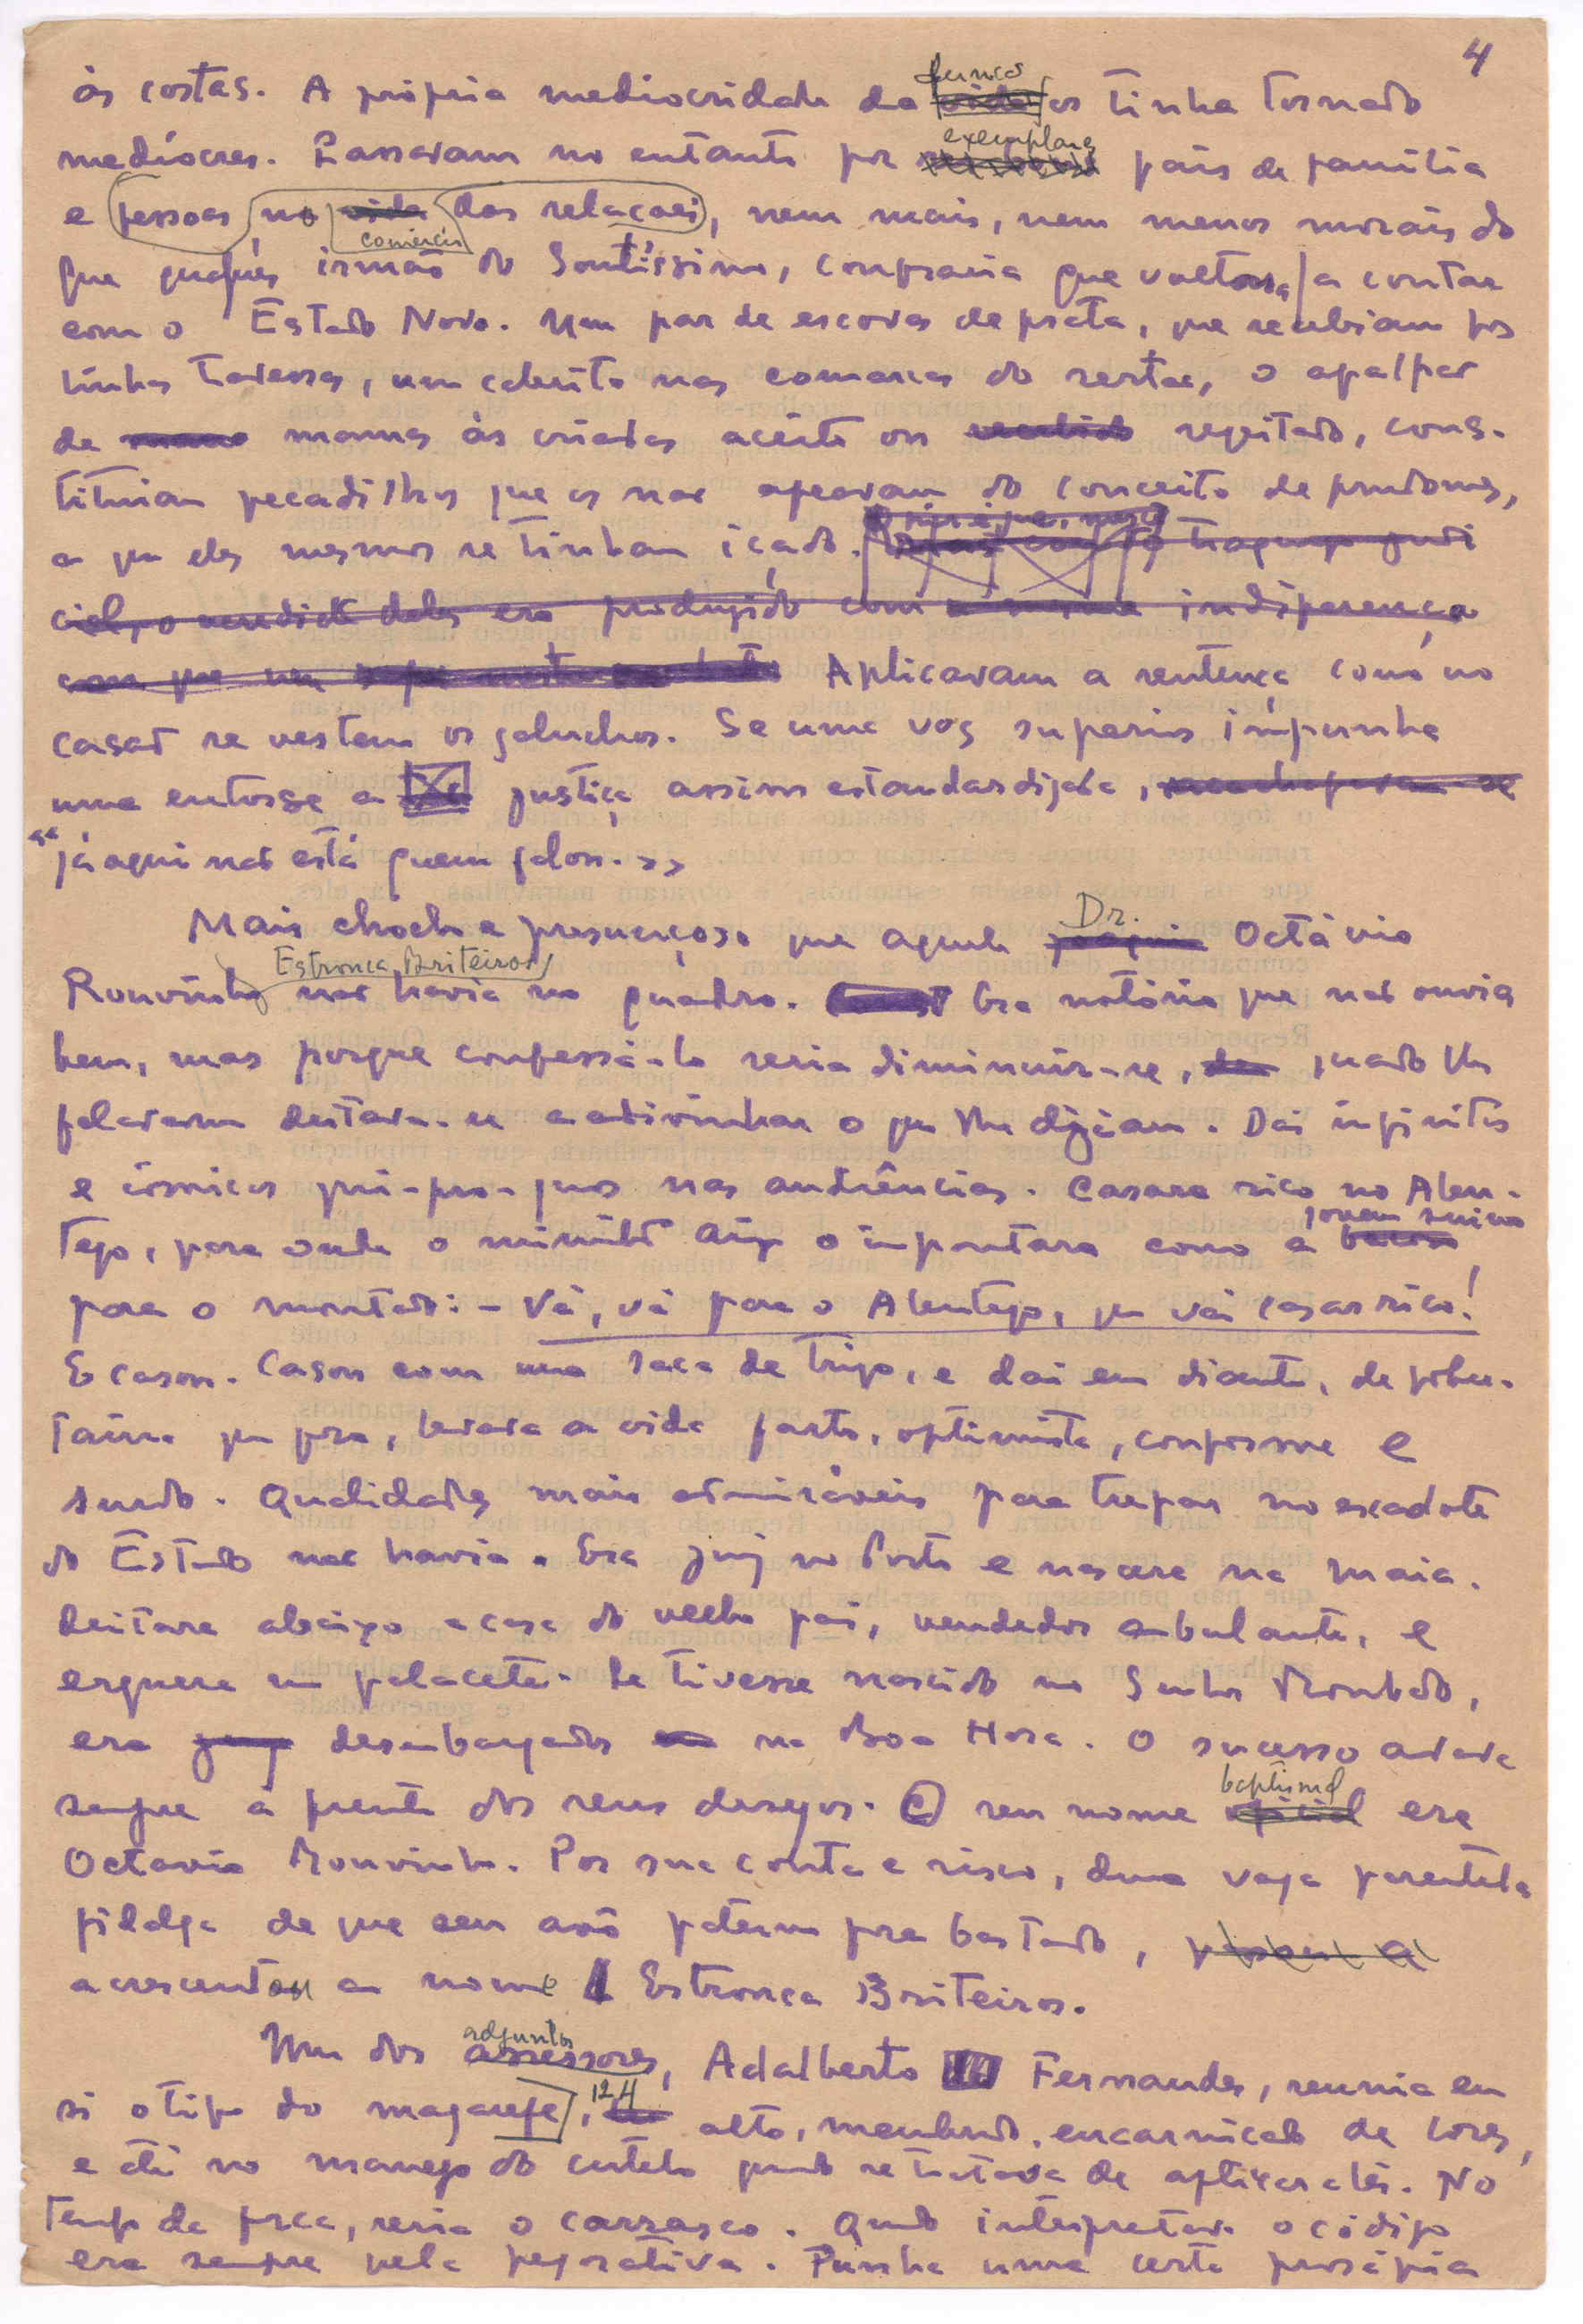 4
às costas. A própria mediocridade da função os tinha tornado
medíocres. Passavam no entanto por exemplares pais de família
e pessoas, no comércio das relações, nem mais, nem menos morais do
que quaisquer irmão do Santíssimo, confraria que voltara a contar
com o Estado Novo. Um par de escovas de prata, que recebiam por
linhas travessas, um cabrito nas comarcas do sertão, o apalpar
de mamas às criadas aceite ou repitado, cons-
tituiam pecadilhos que os não apeavam do conceito de prudomes,
a que eles mesmos se tinham içado.
cial, o veredicto deles era produzido com a mesma indiferença
com que um Aplicavam a sentença como no
casão se vestem os galuchos. Se uma voz superior impunha
uma entorse a justiça assim estandardizada,
«já aqui não está quem falou.»
Mais chocho e presunçoso que aquele Dr. Octávio
Rouvinho Estronca Briteiros não havia no quadro. Era notório que não ouvia
bem, mas porque confessá-lo seria diminuir-se, quando lhe
falavam deitava-se a adivinhar o que lhe diziam. Daí infinitos
e cómicos qui-pro-quos nas audiências. Casara rico no Alen-
tejo, para onde o ministro o importara como a jovem suíno
para o montado: - Vá, vá para o Alentejo, que vai casar rico!
E casou. Casou com uma saca de trigo, e daí em diante, de pobre-
tana que fora, levava a vida farto, optimista, conforme e
surdo. Qualidades mais admiráveis para trepar no escadote
do Estado não havia. Era juiz no Porto e nascera na Maia.
Deitara abaixo a casa do velho pai, vendedor ambulante, e
erguera um palacete. Se tivesse nascido no Senhor Roubado,
era desembargador na Boa Hora. O sucesso andava
sempre à frente dos seus desejos. O seu nome baptismal era
Octavio Rouvinho. Por sua conta e risco, duma vaga parentela
fidalga de que seu avô paterno fora bastardo,
acrescentou ao nome Estronca Briteiros.
Um dos adjuntos, Adalberto Fernandes, reunia em
si o tipo do magarefe, alto, membrudo, encarniçado de cores,
e até no manejo do cutelo quando se tratava de aplicar a lei. No
tempo da forca, seria o carrasco. Quando interpretava o código
era sempre pela pejorativa. Punha uma certa prosápia